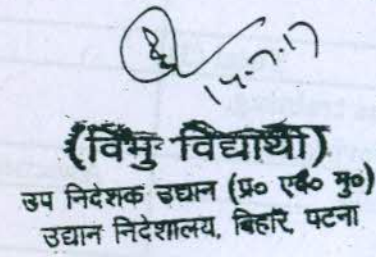 14.7.17
(विभु विद्यार्थी)
उप निदेशक उद्यान (प्र० एवं० मु०)
उद्यान निदेशालय, बिहार, पटना